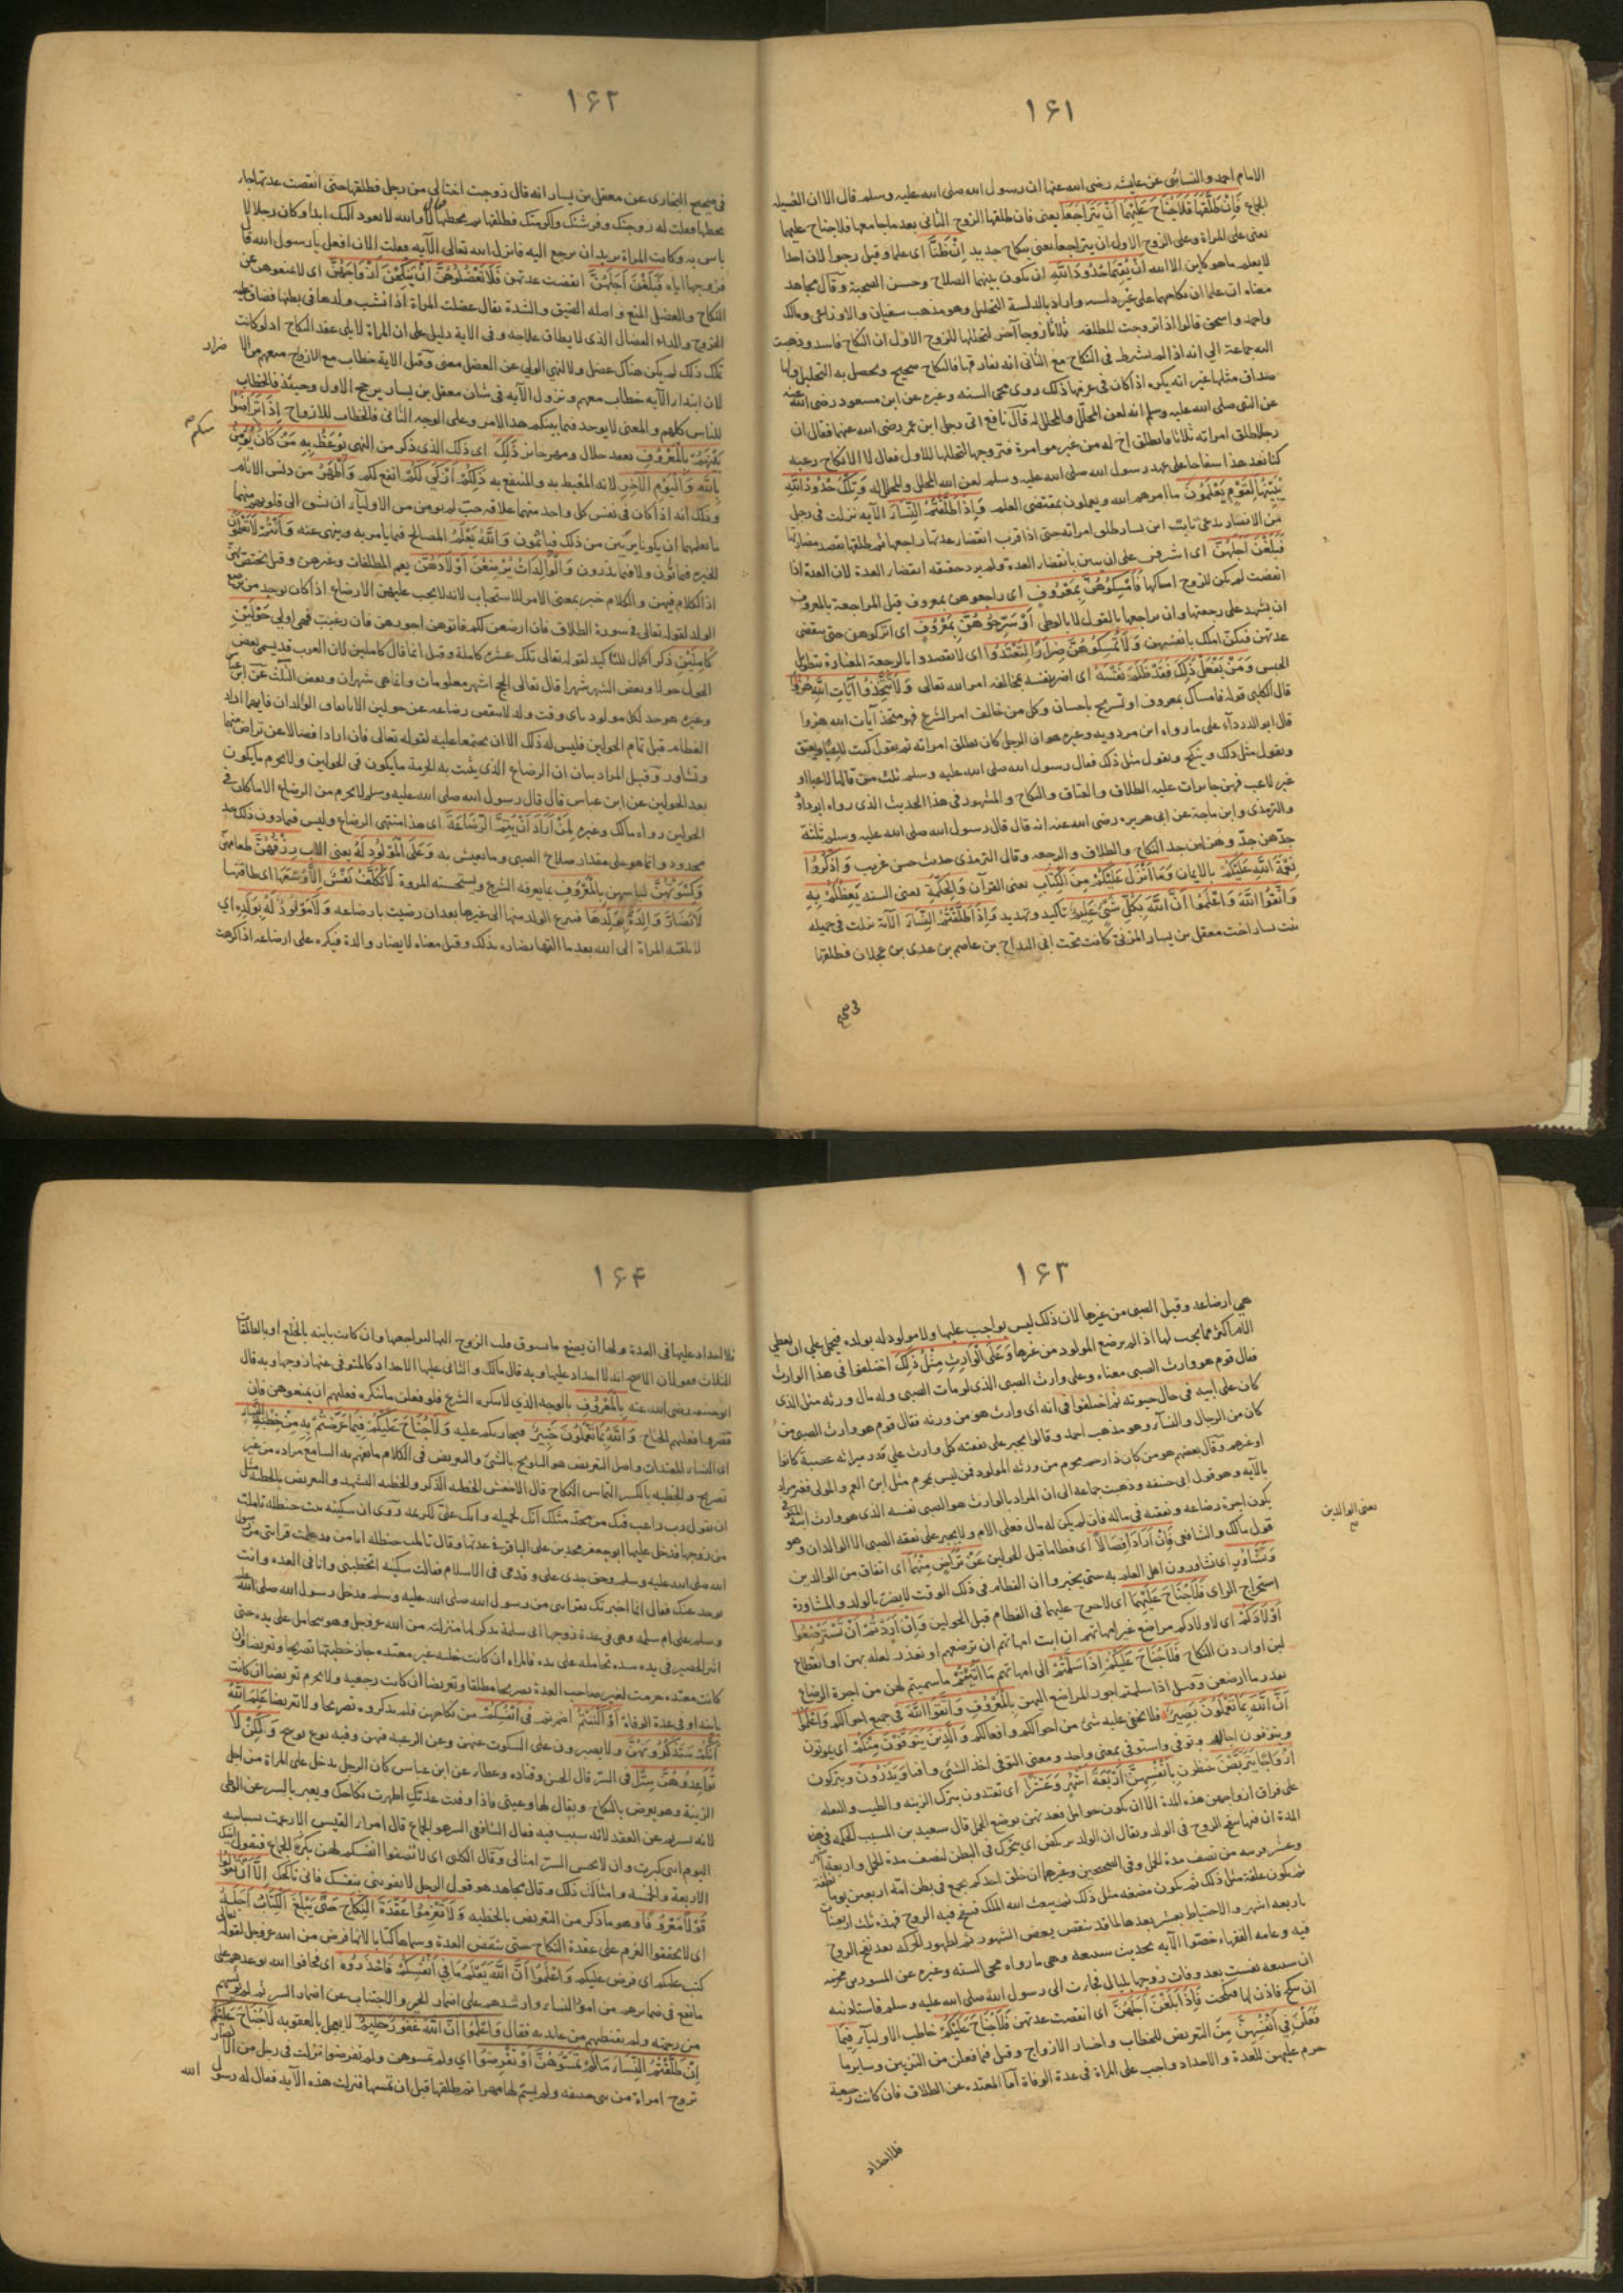 ١۶١
الامام احمد والنسائى عن عايشه رضى الله عنها ان رسول الله صلى الله عليه وسلم قال الا ان العسيله
الجماع فَاِنْ طَلَّقَهَا فَلَا جُنَاحَ عَلَيْهِمَا اَنْ يَتَرَاجَعَا يعنى فان طلقها الزوج الثانى بعد ما جامعها فلا جناح عليهما
يعنى على المراة وعلى الزوج الاول ان يتراجعا يعنى بنكاح جديد اِنْ ظَنَّا اى علما وقيل رجوا لان احدا
لا يعلم ما هو كاين الا الله اَنْ يُقِيمَا حُدُودَ اللهِ ان يكون بينهما الصلاح وحسن الصحبة وقال مجاهد
معناه ان علما ان نكاحهما على غير دلسه واراد بالدلسة التحليل وهو مذهب سفيان والاوزاعى ومالك
واحمد واسحق قالوا اذا تزوجت المطلقه ثلاثا زوجا آخر ليحللها للزوج الاول ان النكاح فاسد وذهبت
اليه جماعة الي انه اذا لم يشرط فى النكاح مع الثانى انه يفارقها فالنكاح صحيح ويحصل به التحليل ولها
صداق مثلها غير انه يكره اذا كان فى عزمها ذلك روى محى السنه وغيره عن ابن مسعود رضى الله عنه
عن النبى صلى الله عليه وسلم انه لعن المحلل والمحلل له قال نافع اتى رجل ابن عمر رضى الله عنهما فقال ان
رجلا طلق امراته ثلاثا فانطلق اخ له من غير موامرة فتزوجها ليحللها للاول فقال لا الا نكاح رغبه
كنا نعد هذا سفاحا على عهد رسول الله صلى الله عليه وسلم لعن الله المحلل والمحلل له وَتِلْكَ حُدُودُ اللهِ
يُبَيِّنُهَا لِقَوْمٍ يَعْلَمُونَ ما امرهم الله ويعملون بمقتضى العلم وَاِذَا طَلَّقْتُمُ النِّسَاءَ الآيه نزلت فى رجل
من الانصار يدعى ثابت ابن يسار طلق امراته حتى اذا قرب انقضاء عدتها راجعها ثم طلقها يقصد مضارتها
فَبَلَغْنَ اَجَلَهُنَّ اى اشرفن على ان يبن بانقضاء العدة ولم يرد حقيقه انقضاء العدة لان العدة اذا
انقضت لم يكن للزوج امساكها فَاَمْسِكُوهُنَّ بِمَعْرُوفٍ اى راجعوهن بمعروف قيل المراجعة بالمعروف
ان يشهد على رجعتها وان يراجعها بالقول لا بالوطى اَوْ سَرِّحُوهُنَّ بِمَعْرُوفٍ اى اتركوهن حتى ينقضى
عدتهن فيكن املك بانفسهن وَلَا تُمْسِكُوهُنَّ ضِرَارًا لِتَعْتَدُوا اى لا يقصدوا بالرجعة المضارة بتطويل
الحبس وَمَنْ يَفْعَلْ ذٰلِكَ فَقَدْ ظَلَمَ نَفْسَهُ اى اضر بنفسه بمخالفه امر الله تعالى وَلَا تَتَّخِذُوا آيَاتِ اللهِ هُزُوًا
قال الكلبى قوله فامساك بمعروف او تسريح باحسان وكل من خالف امر الشرع فهو متخذ آيات الله هزوا
قال ابو الدرداء على ما رواه ابن مردويه وغيره هو ان الرجل كان يطلق امراته ثم يقول كنت لاعبا ويعتق
ويقول مثل ذلك وينكح ويقول مثل ذلك فقال رسول الله صلى الله عليه وسلم ثلث من قالها لاعبا او
غير لاعب فهن جايزات عليه الطلاق والعتاق والنكاح والمشهور فى هذا الحديث الذى رواه ابو داود
والترمذى وابن ماجة عن ابى هريره رضى الله عنه انه قال قال رسول الله صلى الله عليه وسلم ثلثة
جدهن جدّ وهزلهن جد النكاح والطلاق والرجعه وقال الترمذى حديث حسن غريب وَاذْكُرُوا
نِعْمَةَ اللهِ عَلَيْكُمْ بالايمان وَمَا اَنْزَلَ عَلَيْكُمْ مِنَ الْكِتَابِ يعنى القرآن وَالْحِكْمَةِ يعنى السنه يَعِظُكُمْ بِهِ
وَاتَّقُوا اللهَ وَاعْلَمُوا اَنَّ اللهَ بِكُلِّ شَىْءٍ عَلِيمٌ تاكيد وتهديد وَاِذَا طَلَّقْتُمُ النِّسَاءَ الآية نزلت فى جميله
بنت يسار اخت معقل بن يسار المزنى كانت تحت ابى البداح بن عاصم بن عدى بن عجلان فطلقها
فى صحيح
١۶٢
فى صحيح البخارى عن معقل بن يسار انه قال زوجت اختا لى من رجل فطلقها حتى انقضت عدتها جاء
يخطبها فقلت له زوجتك وفرشتك واكرمتك فطلقتها ثم تخطبها لا والله لا تعود اليك ابدا وكان رجلا لا
باس به وكانت المراة تريد ان ترجع اليه فانزل الله تعالى الآيه فقلت الان افعل يا رسول الله قال
فزوجها اياه فَبَلَغْنَ اَجَلَهُنَّ انقضت عدتهن فَلَا تَعْضُلُوهُنَّ اَنْ يَنْكِحْنَ اَزْوَاجَهُنَّ اى لا تمنعوهن عن
النكاح والعضل المنع واصله الضيق والشدة يقال عضلت المراة اذا نشب ولدها فى بطنها فضاق عليه
الخروج والداء العضال الذى لا يطاق علاجه وفى الاية دليل على ان المراة لا يلى عقد النكاح اذ لو كانت
تملك ذلك لم يكن هناك عضل ولا لنهى الولى عن العضل معنى وقيل الاية خطاب مع الازواج
لان ابتداء الآيه خطاب معهم ونزول الآيه فى شان معقل بن يسار يرجح الاول وحينئذ فالخطاب
للناس كلهم والمعنى لا يوجد فيما بينكم هذا الامر وعلى الوجه الثانى فالخطاب للازواج اِذَا تَرَاضَوْا
بَيْنَهُمْ بِالْمَعْرُوفِ بعقد حلال ومهر جائز ذٰلِكَ اى ذلك الذى ذكر من النهى يُوعَظُ بِهِ مَنْ كَانَ يُؤْمِنُ
بِاللهِ وَالْيَوْمِ الْآخِرِ لانه المتعظ به والمنتفع به ذٰلِكُمْ اَزْكٰى لَكُمْ انفع لكم وَاَطْهَرُ من دنس الاثام
وذلك انه اذا كان فى نفس كل واحد منهما علاقه حبّ لم يومن من الاوليآء ان يسبق الى قلوبهم منهما
ما لعلهما ان يكونا بريّين من ذلك فياثمون وَاللهُ يَعْلَمُ المصالح فيما يامر به وينهى عنه وَاَنْتُمْ لَا تَعْلَمُونَ
الخيره فيما تؤتون ولا فيما تذرون وَالْوَالِدَاتُ يُرْضِعْنَ اَوْلَادَهُنَّ يعم المطلقات وغيرهن وقيل يختص بهن
اذ الكلام فيهن والكلام خبر بمعنى الامر للاستحباب لانه لا يجب عليهن الارضاع اذا كان يوجد من يرضع
الولد لقوله تعالى فى سورة الطلاق فان ارضعن لكم فآتوهن اجورهن فان رغبت فهى اولى حَوْلَيْنِ
كَامِلَيْنِ ذكر الكمال للتاكيد لقوله تعالى تلك عشرة كاملة وقيل انما قال كاملين لان العرب قد يسمى بعض
الحول حولا وبعض الشهر شهرا قال تعالى الحج اشهر معلومات وانما هى شهران وبعض الثالث عن ابن عباس
وغيره هو حد لكل مولود باى وقت ولد لا ينقص رضاعه عن حولين الا باتفاق الوالدان فايهما اراد
الفطام قبل تمام الحولين فليس له ذلك الا ان يجتمعا عليه لقوله تعالى فان ارادا فصالا عن تراض منهما
وتشاور وقيل المراد بيان ان الرضاع الذى يثبت به الحرمة ما يكون فى الحولين ولا يحرم ما يكون
بعد الحولين عن ابن عباس قال قال رسول الله صلى الله عليه وسلم لا يحرم من الرضاع الا ما كان فى
الحولين رواه مالك وغيره لِمَنْ اَرَادَ اَنْ يُتِمَّ الرَّضَاعَةَ اى هذا منتهى الرضاع وليس فيما دون ذلك حد
محدود وانما هو على مقدار صلاح الصبى وما يعيش به وَعَلَى الْمَوْلُودِ لَهُ يعنى الاب رِزْقُهُنَّ طعامهن
وَكِسْوَتُهُنَّ لباسهن بِالْمَعْرُوفِ بما يعرفه الشرع ويستحسنه المروة لَا تُكَلَّفُ نَفْسٌ اِلَّا وُسْعَهَا اى طاقتها
لَا تُضَارَّ وَالِدَةٌ بِوَلَدِهَا فينزع الولد منها الى غيرها بعد ان رضيت بارضاعه وَلَا مَوْلُودٌ لَهُ بِوَلَدِهِ اي
لا يلقيه المراة الى الله بعد ما الفها يضاره بذلك وقيل معناه لا يضار والدة فيكره على ارضاعه اذا كرهت
١۶٣
هي ارضاعه وقبل الصبى من غيرها لان ذلك ليس بواجب عليها ولا مولود له بولده فيحمل علي ان يعطي
الام اكثر مما يجب لها اذا لم يرضع المولود من غيرها وَعَلَى الْوَارِثِ مِثْلُ ذٰلِكَ اختلفوا فى هذا الوارث
فقال قوم هو وارث الصبى معناه وعلى وارث الصبى الذى لو مات الصبى وله مال ورثه مثل الذى
كان على ابيه فى حال حيوته ثم اختلفوا فى انه اى وارث هو من ورثه فقال قوم هو وارث الصبى من
كان من الرجال والنساء وهو مذهب احمد وقالوا يجبر على نفقته كل وارث علي قدر ميراثه عصبة كانوا
او غيرهم وقال بعضهم هو من كان ذا رحم محرم من ورثه المولود فمن ليس بمحرم مثل ابن العم والمولى فغير مراد
بالآيه وهو قول ابى حنيفه وذهب جماعه الى ان المراد بالوارث هو الصبى نفسه الذى هو وارث ابيه
يكون اجرة رضاعه ونفقته فى ماله فان لم يكن له مال فعلى الام ولا يجبر على نفقه الصبى الا الوالدان وهو
قول مالك والشافعى فَاِنْ اَرَادَا فِصَالًا اى فطاما قبل الحولين عَنْ تَرَاضٍ مِنْهُمَا اى اتفاق من الوالدين
يعنى الوالدين
وَتَشَاوُرٍ اى تشاورون اهل العلم به حتى يخبروا ان الفطام فى ذلك الوقت لا يضر بالولد والمشاورة
استخراج الراى فَلَا جُنَاحَ عَلَيْهِمَا اى لا حرج عليهما فى الفطام قبل الحولين وَاِنْ اَرَدْتُمْ اَنْ تَسْتَرْضِعُوا
اَوْلَادَكُمْ اى لاولادكم مراضع غير امهاتهم ان ابت امهاتهم ان ترضعهم او تعذر لعله بهن او انقطاع
لبن او اردن النكاح فَلَا جُنَاحَ عَلَيْكُمْ اِذَا سَلَّمْتُمْ الى امهاتهم مَا آتَيْتُمْ ما سميتم لهن من اجرة الرضاع
بقدر ما ارضعن وقيل اذا سلمتم اجور المراضع اليهن بِالْمَعْرُوفِ وَاتَّقُوا اللهَ فى جميع احوالكم وَاعْلَمُوا
اَنَّ اللهَ بِمَا تَعْمَلُونَ بَصِيرٌ فلا يخفى عليه شئ من احوالكم وافعالكم وَالَّذِينَ يُتَوَفَّوْنَ مِنْكُمْ اى يموتون
ويتوفون اجالهم وتوفى واستوفى بمعنى واحد ومعنى التوفى اخذ الشئ وافيا وَيَذَرُونَ ويتركون
اَزْوَاجًا يَتَرَبَّصْنَ ينتظرن بِاَنْفُسِهِنَّ اَرْبَعَةَ اَشْهُرٍ وَعَشْرًا اى تعتدون بترك الزينه والطيب والنقله
على فراق ازواجهن هذه المدة الا ان يكون حوامل فعدتهن بوضع الحمل قال سعيد بن المسيب الحكمه فى هذه
المدة ان فيها ينفخ الروح فى الولد ويقال ان الولد يركض اى يتحرك فى البطن لنصف مدة الحمل واربعة اشهر
وعشر قريبه من نصف مدة الحمل وفى الصحيحين وغيرهما ان خلق احدكم يجمع فى بطن امه اربعين يوما نطفة
ثم يكون علقة مثل ذلك ثم يكون مضغه مثل ذلك ثم يبعث الله الملك فينفخ فيه الروح فهذه ثلث اربعينات
باربعه اشهر والاحتياط بعشر بعدها لما قد ينقص بعض الشهور ثم لظهور الحركه بعد نفخ الروح
فيه وعامه الفقهاء خصوا الآيه بحديث سبيعه وهى ما رواه محى السنه وغيره عن المسور بن مخرمه
ان سبيعه نفست بعد وفات زوجها بليال فجاءت الى رسول الله صلى الله عليه وسلم فاستاذنته
ان تنكح فاذن لها فنكحت فَاِذَا بَلَغْنَ اَجَلَهُنَّ اى انقضت عدتهن فَلَا جُنَاحَ عَلَيْكُمْ خاطب الاوليآء فِيمَا
فَعَلْنَ فِى اَنْفُسِهِنَّ مِنَ التعريض للخطاب واختيار الازواج وقيل فيما فعلن من التزيين وساير ما
حرم عليهن للعدة والاحداد واجب على المراة فى عدة الوفاة اما المعتده عن الطلاق فان كانت رجعية
فلا احداد
١۶۴
فلا احداد عليها فى العدة ولها ان يصنع ما يسوق قلب الزوج اليها ليراجعها وان كانت باينه بالخلع او بالطلقات
الثلاث فقولان الاصح انه لا احداد عليها وبه قال مالك والثانى عليها الاحداد كالمتوفى عنها زوجها وبه قال
ابو حنيفه رضى الله عنه بِالْمَعْرُوفِ بالوجه الذى لا ينكره الشرع فلو فعلن ما ينكره فعليهم ان يمنعوهن فان
قصروا فعليهم الجناح وَاللهُ بِمَا تَعْمَلُونَ خَبِيرٌ فيجازيكم عليه وَلَا جُنَاحَ عَلَيْكُمْ فِيمَا عَرَّضْتُمْ بِهِ مِنْ خِطْبَةِ النِّسَاءِ
اى النساء المعتدات واصل التعريض هو التلويح بالشئ والتعريض فى الكلام ما يفهم به السامع مراده من غير
تصريح والخطبه بالكسر التماس النكاح قال الاخفش الخطبه الذكر والخطبه التشهد والتعريض بالخطبة مثل
ان يقول رب راغب فيك من يجد مثلك انك لجميله وانك علىّ لكريمه روى ان سكينه بنت حنظله تايمت
من زوجها فدخل عليها ابو جعفر محمد بن على الباقر فى عدتها وقال يا بنت حنظله انا من قد علمت قرابتى من رسول
الله صلى الله عليه وسلم وحق جدى على وقدمى فى الاسلام فقالت سكينه اتخطبنى وانا فى العده وانت
يوخذ عنك فقال انما اخبرتك بقرابتى من رسول الله صلى الله عليه وسلم قد دخل رسول الله صلى الله عليه
وسلم على ام سلمه وهى فى عدة زوجها ابى سلمة فذكر لها منزلته من الله عز وجل وهو متحامل على يده حتى
اثر الحصير فى يده من شده تحامله على يده فالمراه ان كانت خليه غير معتده جاز خطبتها تصريحا وتعريضا وان
كانت معتده حرمت لغير صاحب العدة تصريحا مطلقا وتعريضا ان كانت رجعيه ولا يحرم تعريضا ان كانت
باينه او فى عدة الوفاة اَوْ اَكْنَنْتُمْ اضمرتم فِى اَنْفُسِكُمْ من نكاحهن فلم تذكروه تصريحا ولا تعريضا عَلِمَ اللهُ
اَنَّكُمْ سَتَذْكُرُونَهُنَّ ولا يصبرون على السكوت عنهن وعن الرغبه فيهن وفيه نوع توبيخ وَلٰكِنْ لَا
تُوَاعِدُوهُنَّ سِرًّا فى السر قال الحسن وقتاده وعطاء عن ابن عباس كان الرجل يدخل على المراة من اجل
الزينة وهو يعرض بالنكاح ويقال لها دعينى فاذا وفت عدتك اظهرت نكاحك ويعبر بالسر عن الوطى
لانه يسر ثم عن العقد لانه سبب فيه فقال الشافعى السر هو الجماع قال امرء القيس الا زعمت بسباسه
اليوم اننى كبرت وان لا يحسن السر امثالى وقال الكلبى اى لا تصفوا انفسكم لهن بكثرة الجماع فيقول اتيك
الاربعة والخمسة وامثال ذلك وقال مجاهد هو قول الرجل لا تفوتنى بنفسك فانى ناكحك اِلَّا اَنْ تَقُولُوا
قَوْلًا مَعْرُوفًا وهو ما ذكر من التعريض بالخطبه وَلَا تَعْزِمُوا عُقْدَةَ النِّكَاحِ حَتَّى يَبْلُغَ الْكِتَابُ اَجَلَهُ
اى لا تحققوا العزم على عقدة النكاح حتى ينقضى العدة وسماها كتابا لانها فرض من الله عز وجل لقوله تعالى
كتب عليكم اى فرض عليكم وَاعْلَمُوا اَنَّ اللهَ يَعْلَمُ مَا فِى اَنْفُسِكُمْ فَاحْذَرُوهُ اى فخافوا الله توعدهم على
ما يقع فى ضمائرهم من امور النساء وارشدهم على اضمار الخير والاجتناب عن اضمار السر ثم لم يؤيسهم
من رحمته ولم يقنطهم من عايدته فقال وَاعْلَمُوا اَنَّ اللهَ غَفُورٌ حَلِيمٌ لا يعجل بالعقوبه لَا جُنَاحَ عَلَيْكُمْ
اِنْ طَلَّقْتُمُ النِّسَاءَ مَا لَمْ تَمَسُّوهُنَّ اَوْ تَفْرِضُوا اي ولم تمسوهن ولم تفرضوا نزلت فى رجل من الانصار
تزوج امراة من بنى حنيفه ولم يسم لها مهرا ثم طلقها قبل ان يمسها فنزلت هذه الآيه فقال له رسول الله